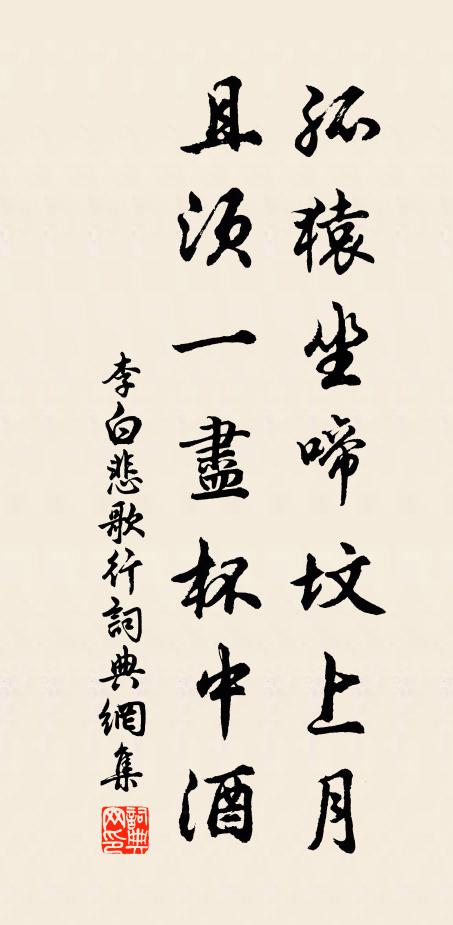 孤猿坐啼坟上月
且須一盡杯中酒
李白悲歌行詞典網集
詞典网印